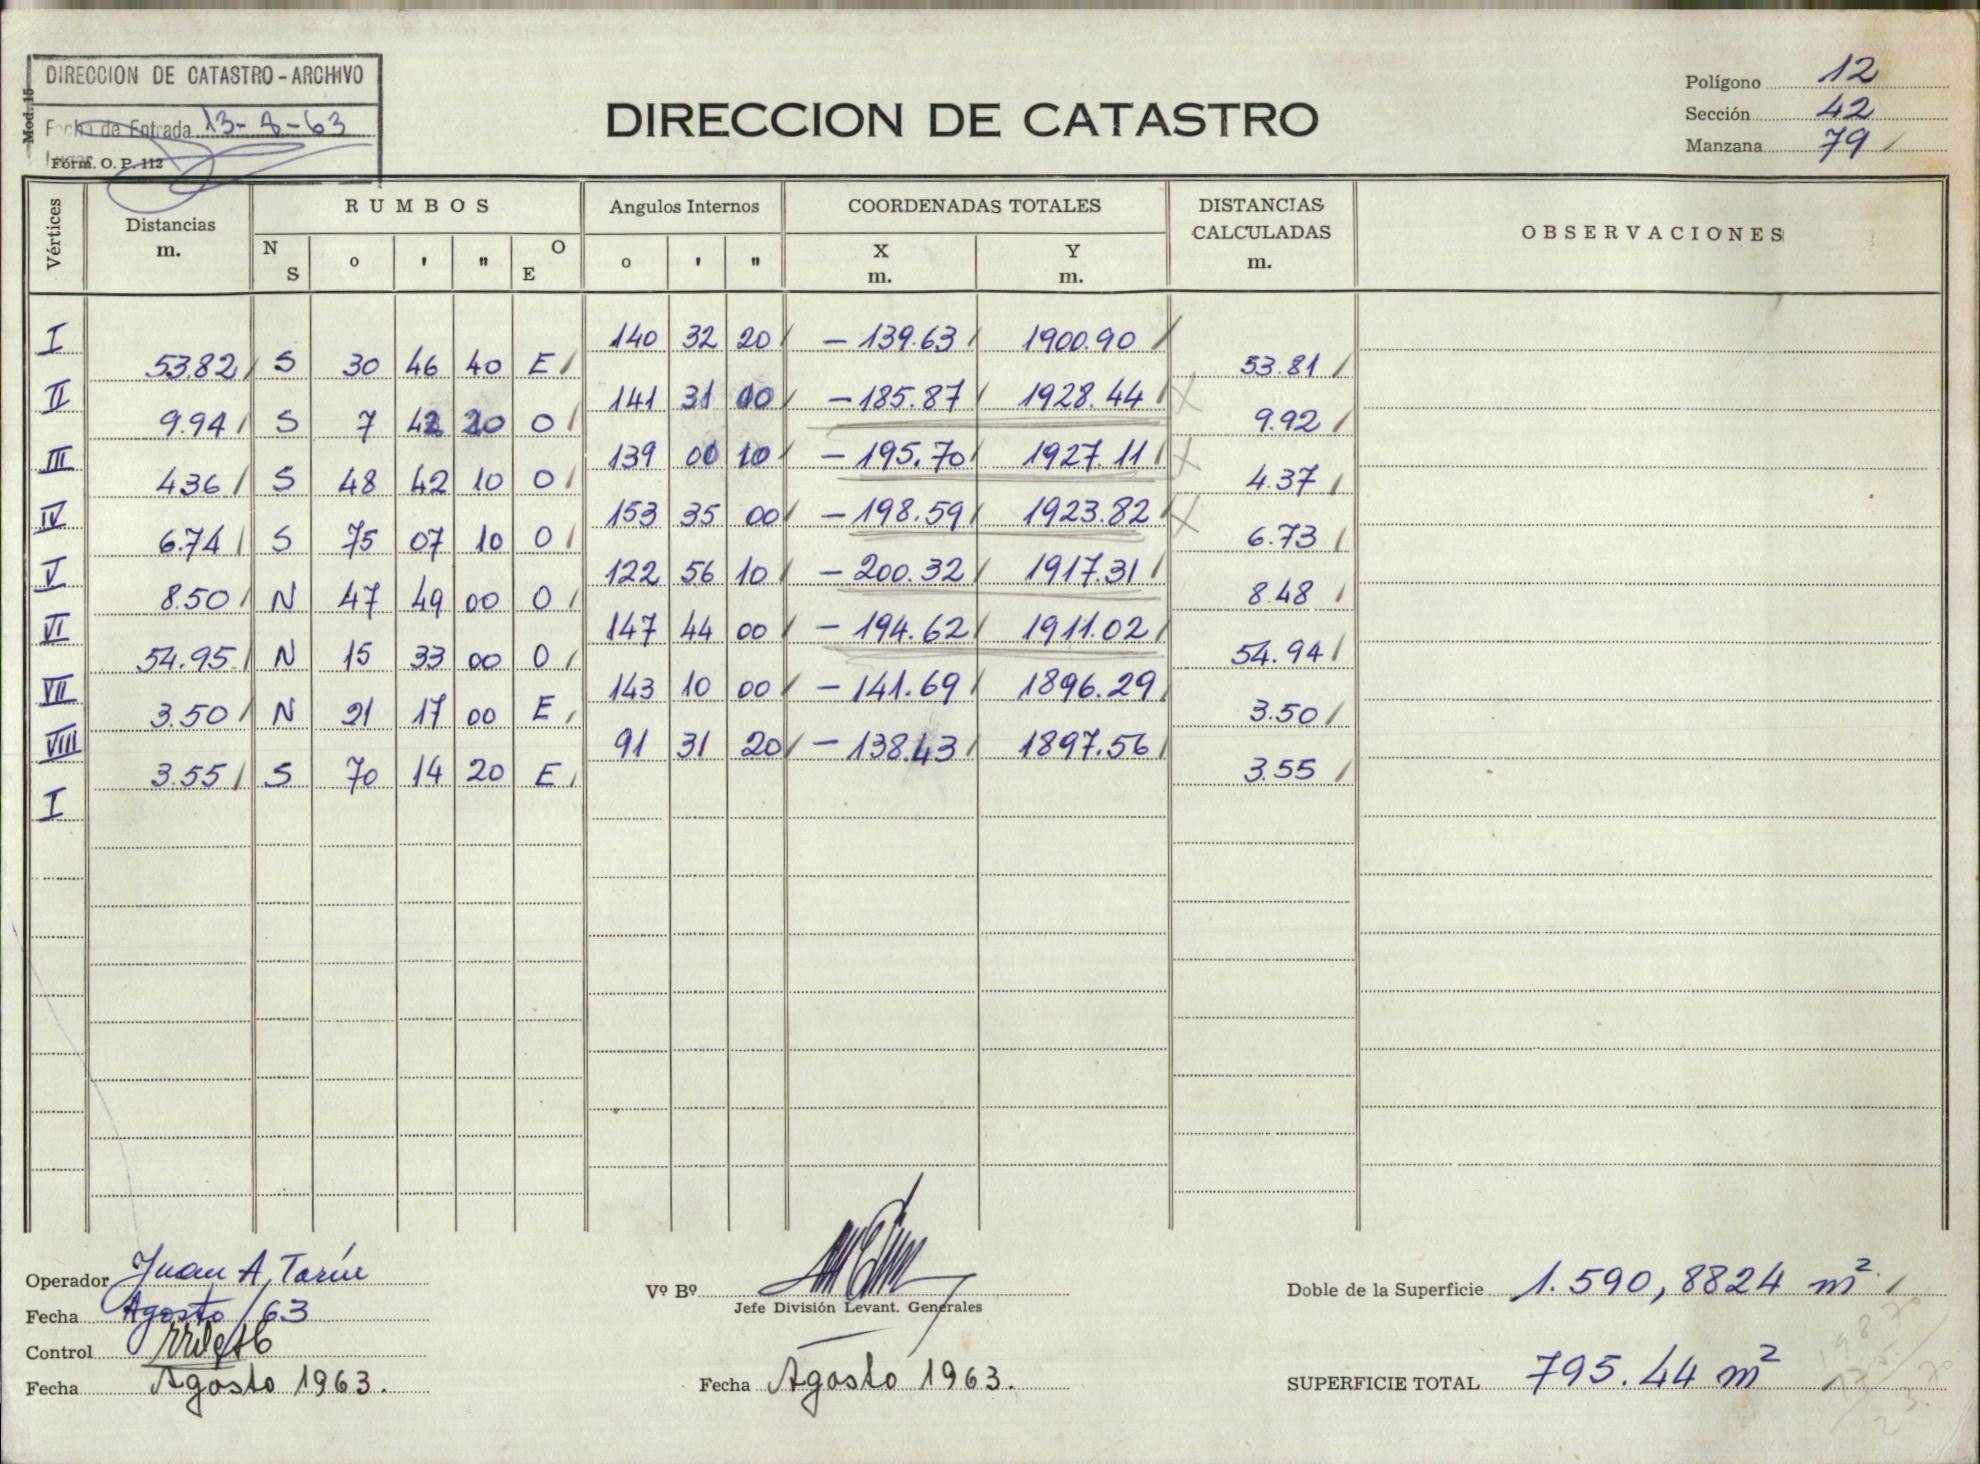 DIRECCION DE CATASTRO - ARCHIVO
Fecha de Entrada 13-8-63
Mod. 15
Form. O. P. 112
DIRECCION DE CATASTRO
Polígono 12
Sección 42
Manzana 79
Vértices
Distancias m.
RUMBOS
N S
o ' "
O E
Angulos Internos
o ' "
COORDENADAS TOTALES
X m.
Y m.
DISTANCIAS CALCULADAS m.
OBSERVACIONES
I 140 32 20 - 139.63 1900.90
53.82 S 30 46 40 E 53.81
II 141 31 00 - 185.87 1928.44
9.94 S 7 42 20 O 9.92
III 139 00 10 - 195.70 1927.11
4.36 S 48 42 10 O 4.37
IV 153 35 00 - 198.59 1923.82
6.74 S 75 07 10 O 6.73
V 122 56 10 - 200.32 1917.31
8.50 N 47 49 00 O 8.48
VI 147 44 00 - 194.62 1911.02
54.95 N 15 33 00 O 54.94
VII 143 10 00 - 141.69 1896.29
3.50 N 21 17 00 E 3.50
VIII 91 31 20 - 138.43 1897.56
3.55 S 70 14 20 E 3.55
I
Operador Juan A.
Fecha Agosto/63
Control
Fecha Agosto 1963.
Vº Bº
Jefe División Levant. Generales
Fecha Agosto 1963.
Doble de la Superficie 1.590,8824 m²
SUPERFICIE TOTAL 795.44 m²